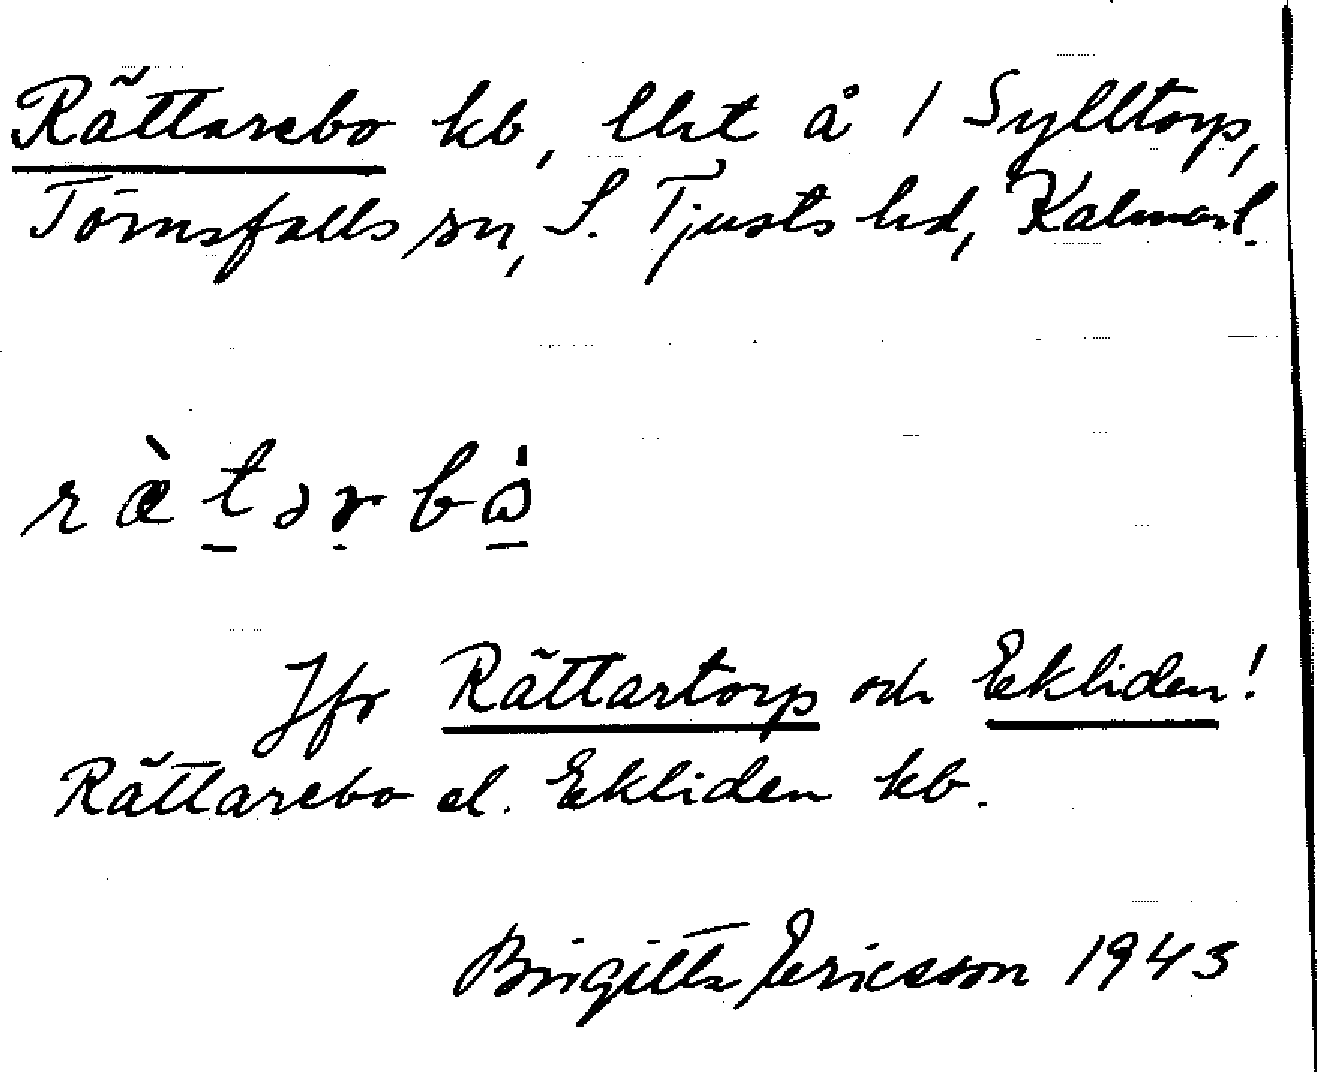 Rättarebo kb, lht å 1 Sylltorp,
Törnsfalls sn, S. Tjusts hd, Kalmarl.
ræ̀tərbå
Jfr Rättartorp och Ekliden!
Rättarebo el. Ekliden kb.
Birgitta Ericsson 1943